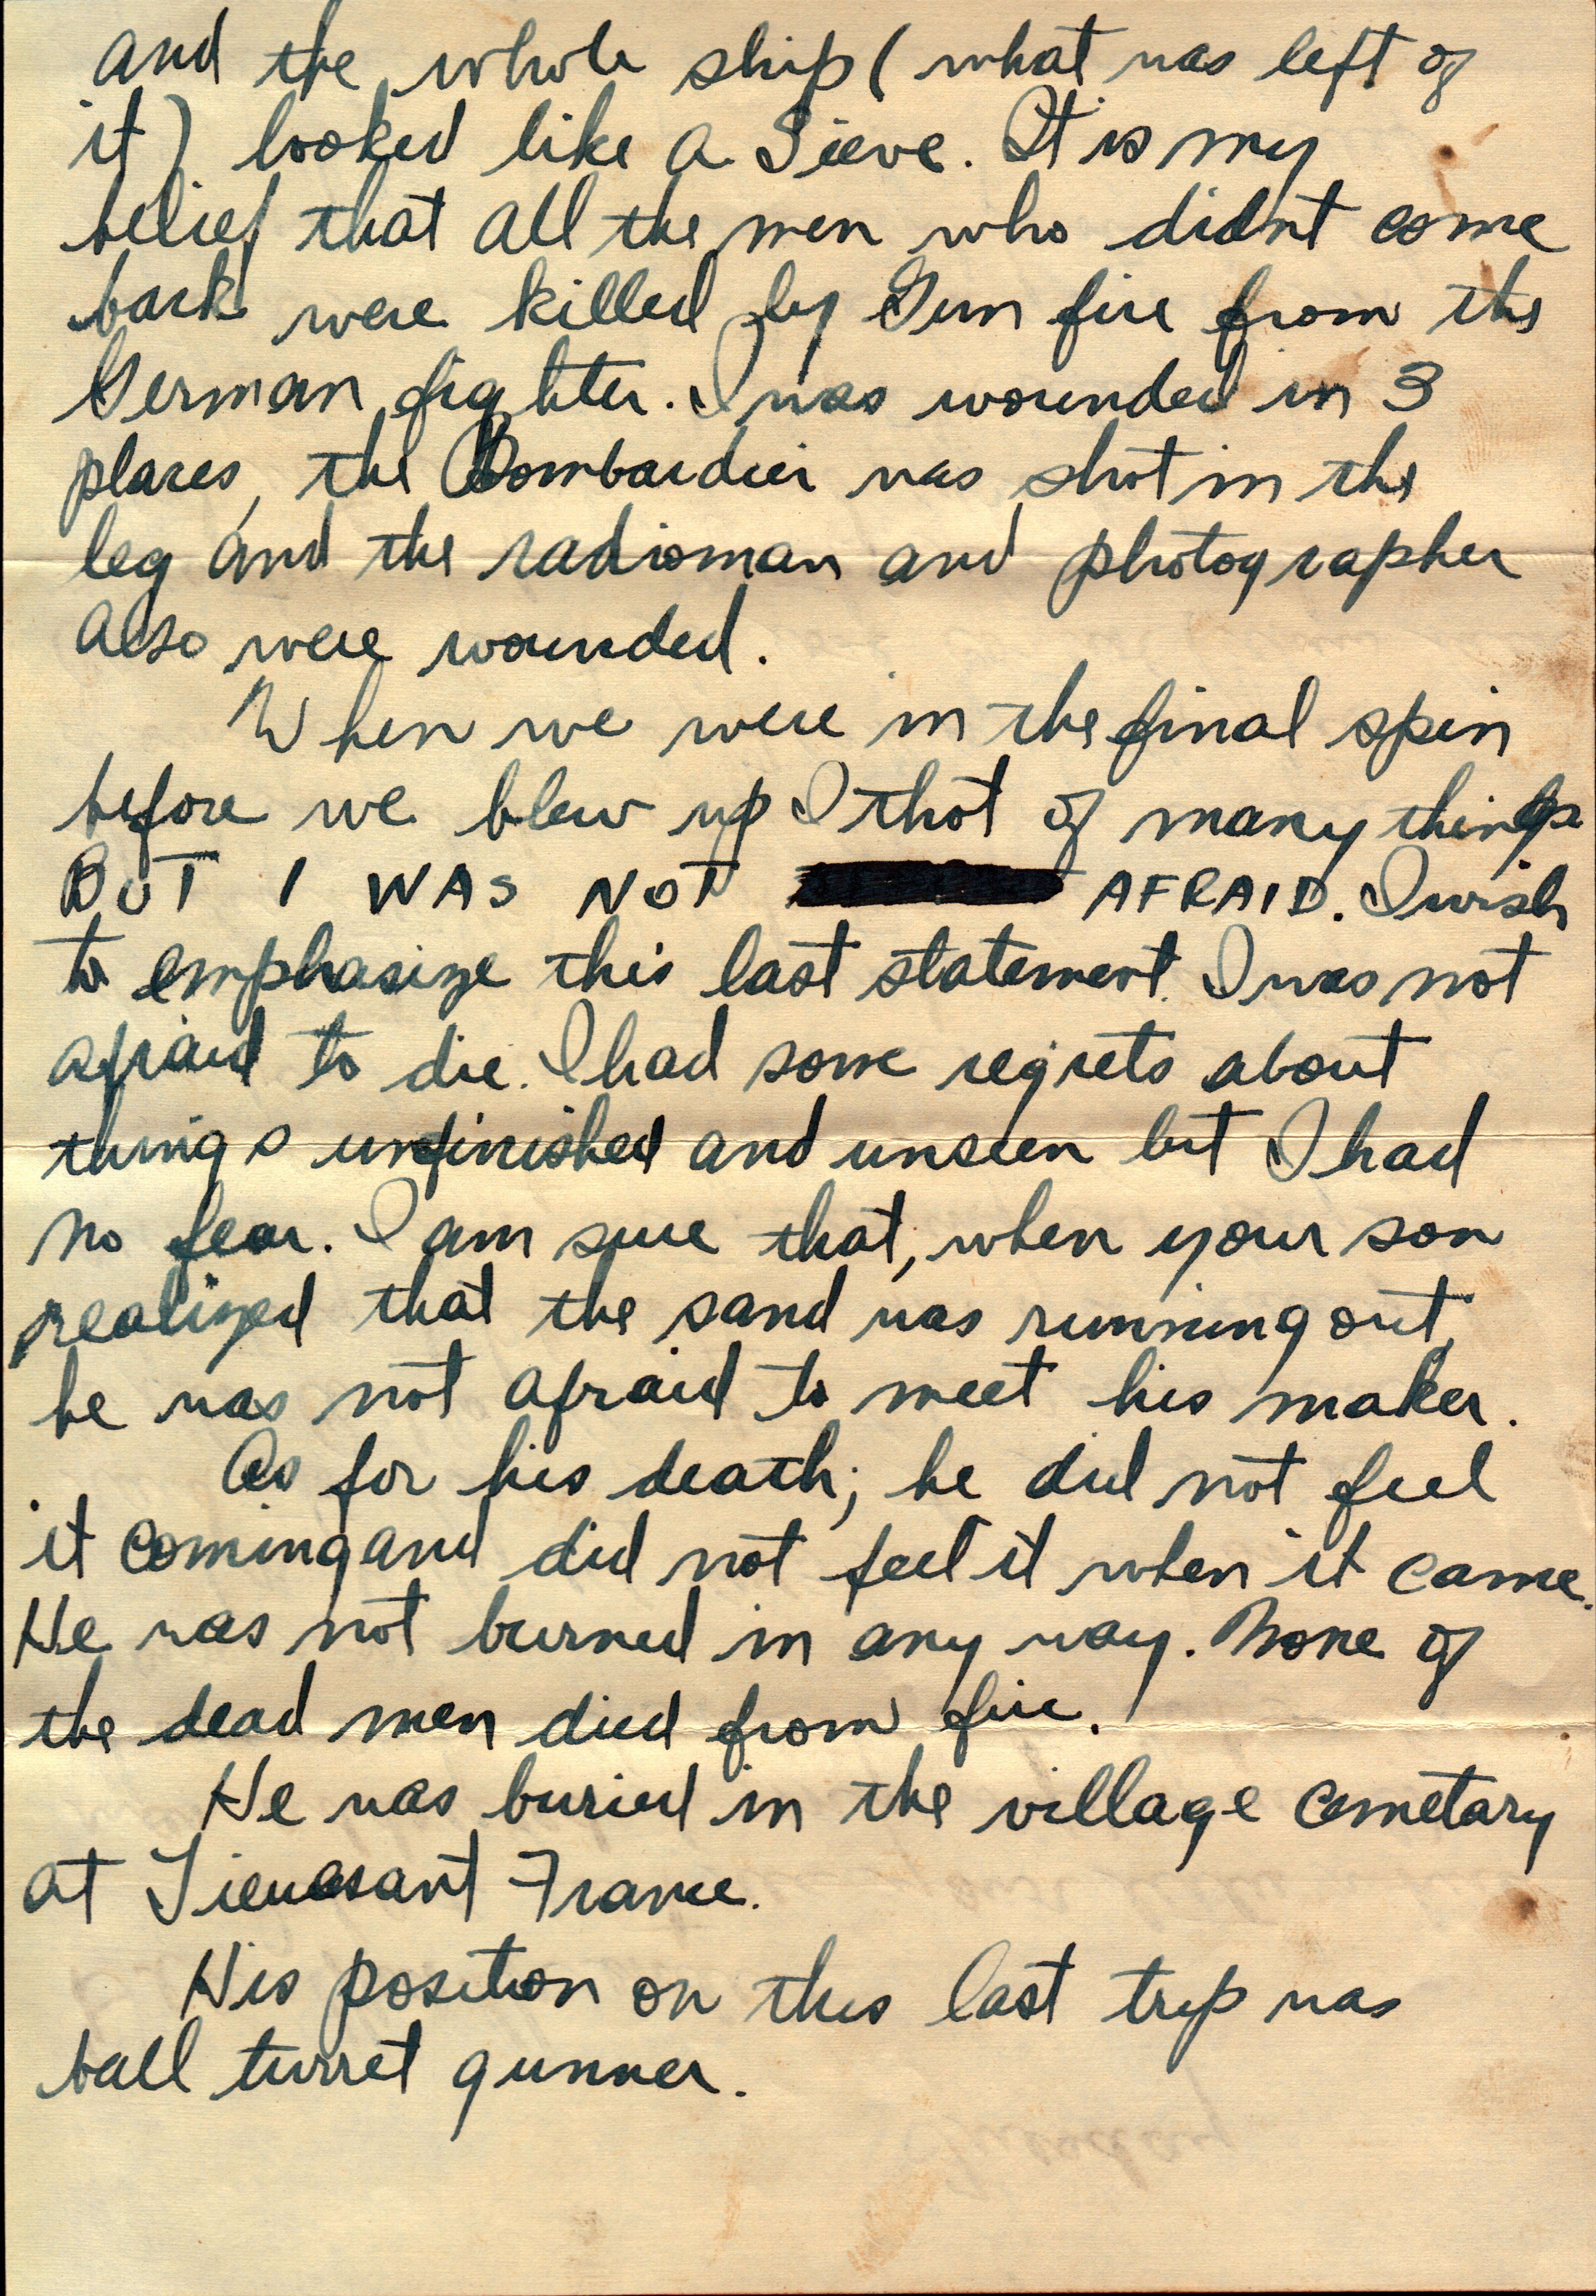 and the whole ship (what was left of
it) looked like a Sieve. It is my
belief that all the men who didnt come
back were killed by Gun fire from the
German fighter. I was wounded in 3
places, the Bombardier was shot in the
leg and the radioman and photographer
also were wounded.
When we were in the final spin
before we blew up I thot of many things
BUT I WAS NOT AFRAID. I wish
to emphasize this last statement. I was not
afraid to die. I had some regrets about
things unfinished and unseen but I had
no fear. I am sure that, when your son
realized that the sand was running out,
he was not afraid to meet his maker.
As for his death; he did not feel
it coming and did not feel it when it came.
He was not burned in any way. None of
the dead men died from fire.
He was buried in the village cemetary
at France.
His position on this last trip was
ball turret gunner.